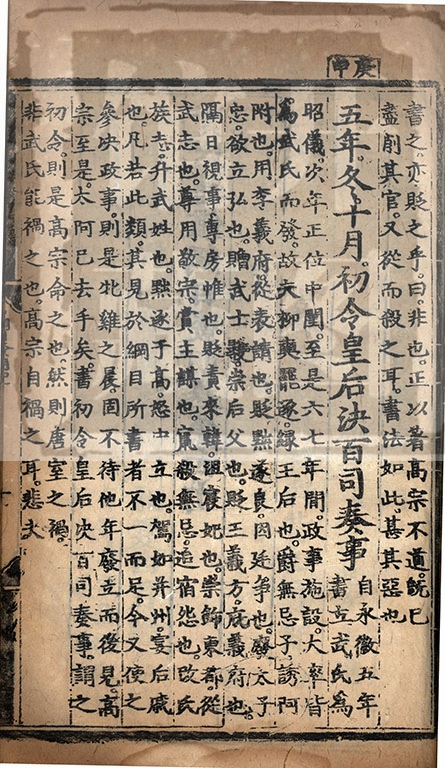 庚申
書之亦貶之乎曰非也正以著高宗不道旣已
盡削其官又從而殺之耳書法如此甚其惡也
五年冬十月初令皇后決百司奏事
自永徽五年
書立武氏爲
昭儀次年正位中閨至是六七年間政事施設大率皆
爲武氏而發故夫柳奭罷逐緣王后也爵無忌子誘阿
附也用李義府從表請也貶黜遂良因廷爭也廢太子
忠欲立弘也贈武士彠崇后父也貶王義方庇義府也
隔日視事專房帷也貶責來韓沮宸妃也崇飾東都從
武志也尊用敬宗賞主謀也竄殺無忌追宿怨也改氏
族志升武姓也黜逐于高怒中立也駕如并州宴后戚
也凡若此類其見於綱目所書者不一而足今又使之
參決政事則是牝雞之晨固不待他年廢立而後見高
宗至是太阿已去手矣書初令皇后決百司奏事謂之
初令則是高宗命之也然則唐室之禍
非武氏能禍之也高宗自禍之耳悲夫